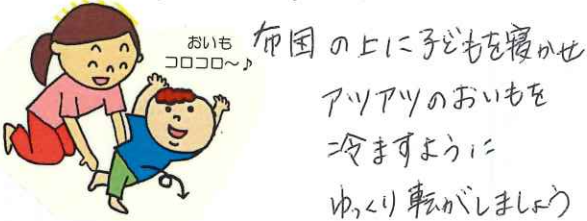 おいも
コロコロ〜♪
布団の上に子どもを寝かせ
アツアツのおいもを
冷ますように
ゆっくり転がしましょう